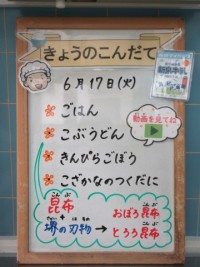 きょうのこんだて
6月17日(火)
ごはん
こぶうどん
きんぴらごぼう
こざかなのつくだに
動画を見てね
こんぶ
昆布
+
さかい はもの
堺の刃物
→
こんぶ
おぼろ昆布
とろろ昆布